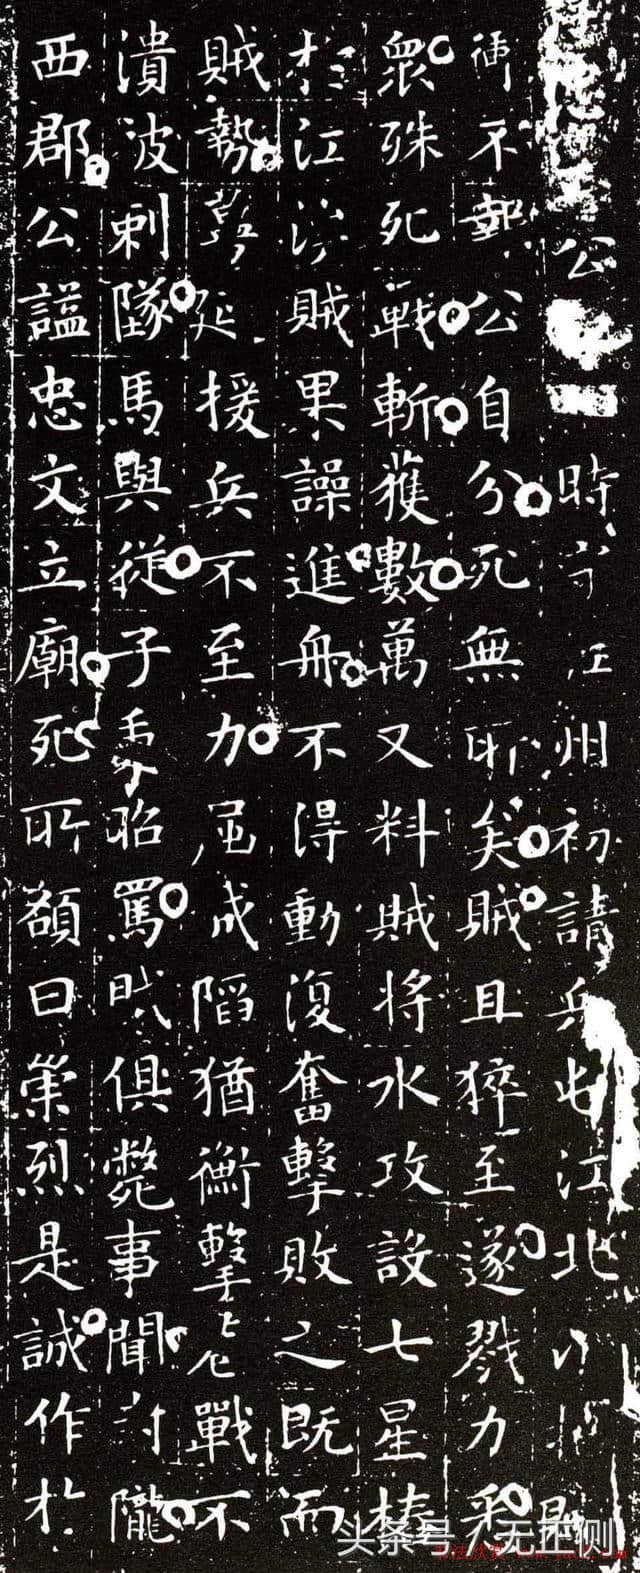 公 時守江州初請兵屯江北
不 公自分死無所矣賊且猝至遂戮力
眾殊死戰斬獲數萬又料賊將水攻設七星樁
於江 賊果譟進舟不得動復奮擊敗之既而
賊勢 延援兵不至力屈城陷猶衛擊 戰不
潰被刺墜馬與從子秉昭罵 俱斃事聞討隴
西郡公謚忠文立廟死所額曰崇烈是誠作於
头条号/无正则